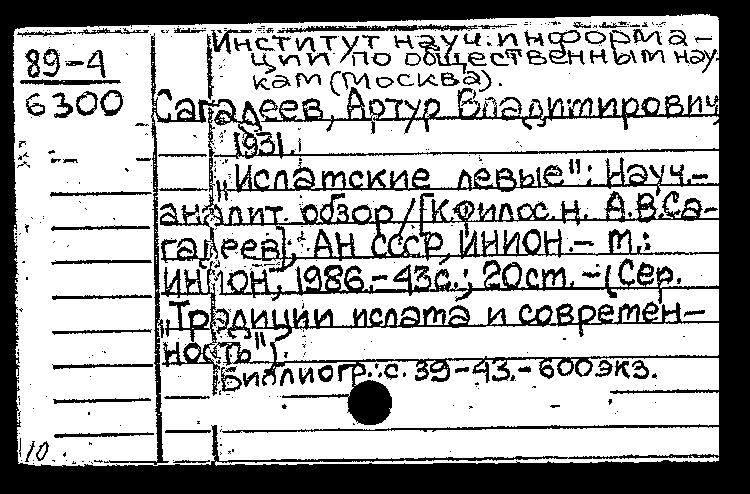 89-4
6300
Институт науч. информа-
ции по общественным нау-
кам (Москва).
Сагадеев, Артур Владимирович
1931.
„Исламские левые": Науч.-
аналит. обзор / [К.филос.н. А.В.Са-
гадеев]; АН СССР, ИНИОН. - М.:
ИНИОН, 1986. - 43с.; 20см. - (Сер.
„Традиции ислама и современ-
ность").
Библиогр.: с. 39-43. - 600экз.
10